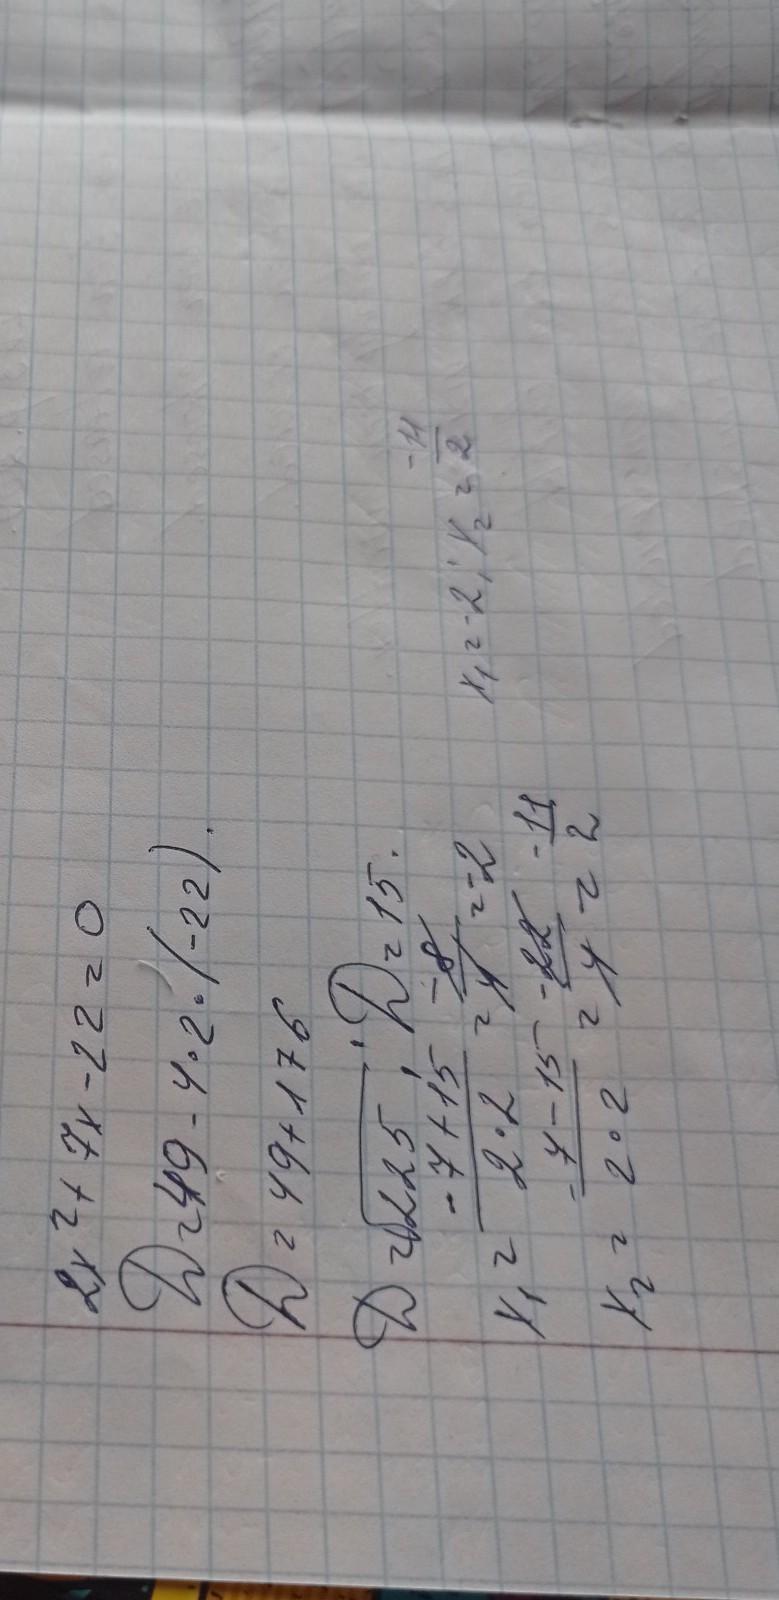 2x² + 7x - 22 = 0
D = 49 - 4·2·(-22).
D = 49 + 176
D = √225; D = 15.
x₁ = (-7+15)/(2·2) = -8/4 = -2
x₂ = (-7-15)/(2·2) = -22/4 = -11/2
x₁ = -2; x₂ = -11/2